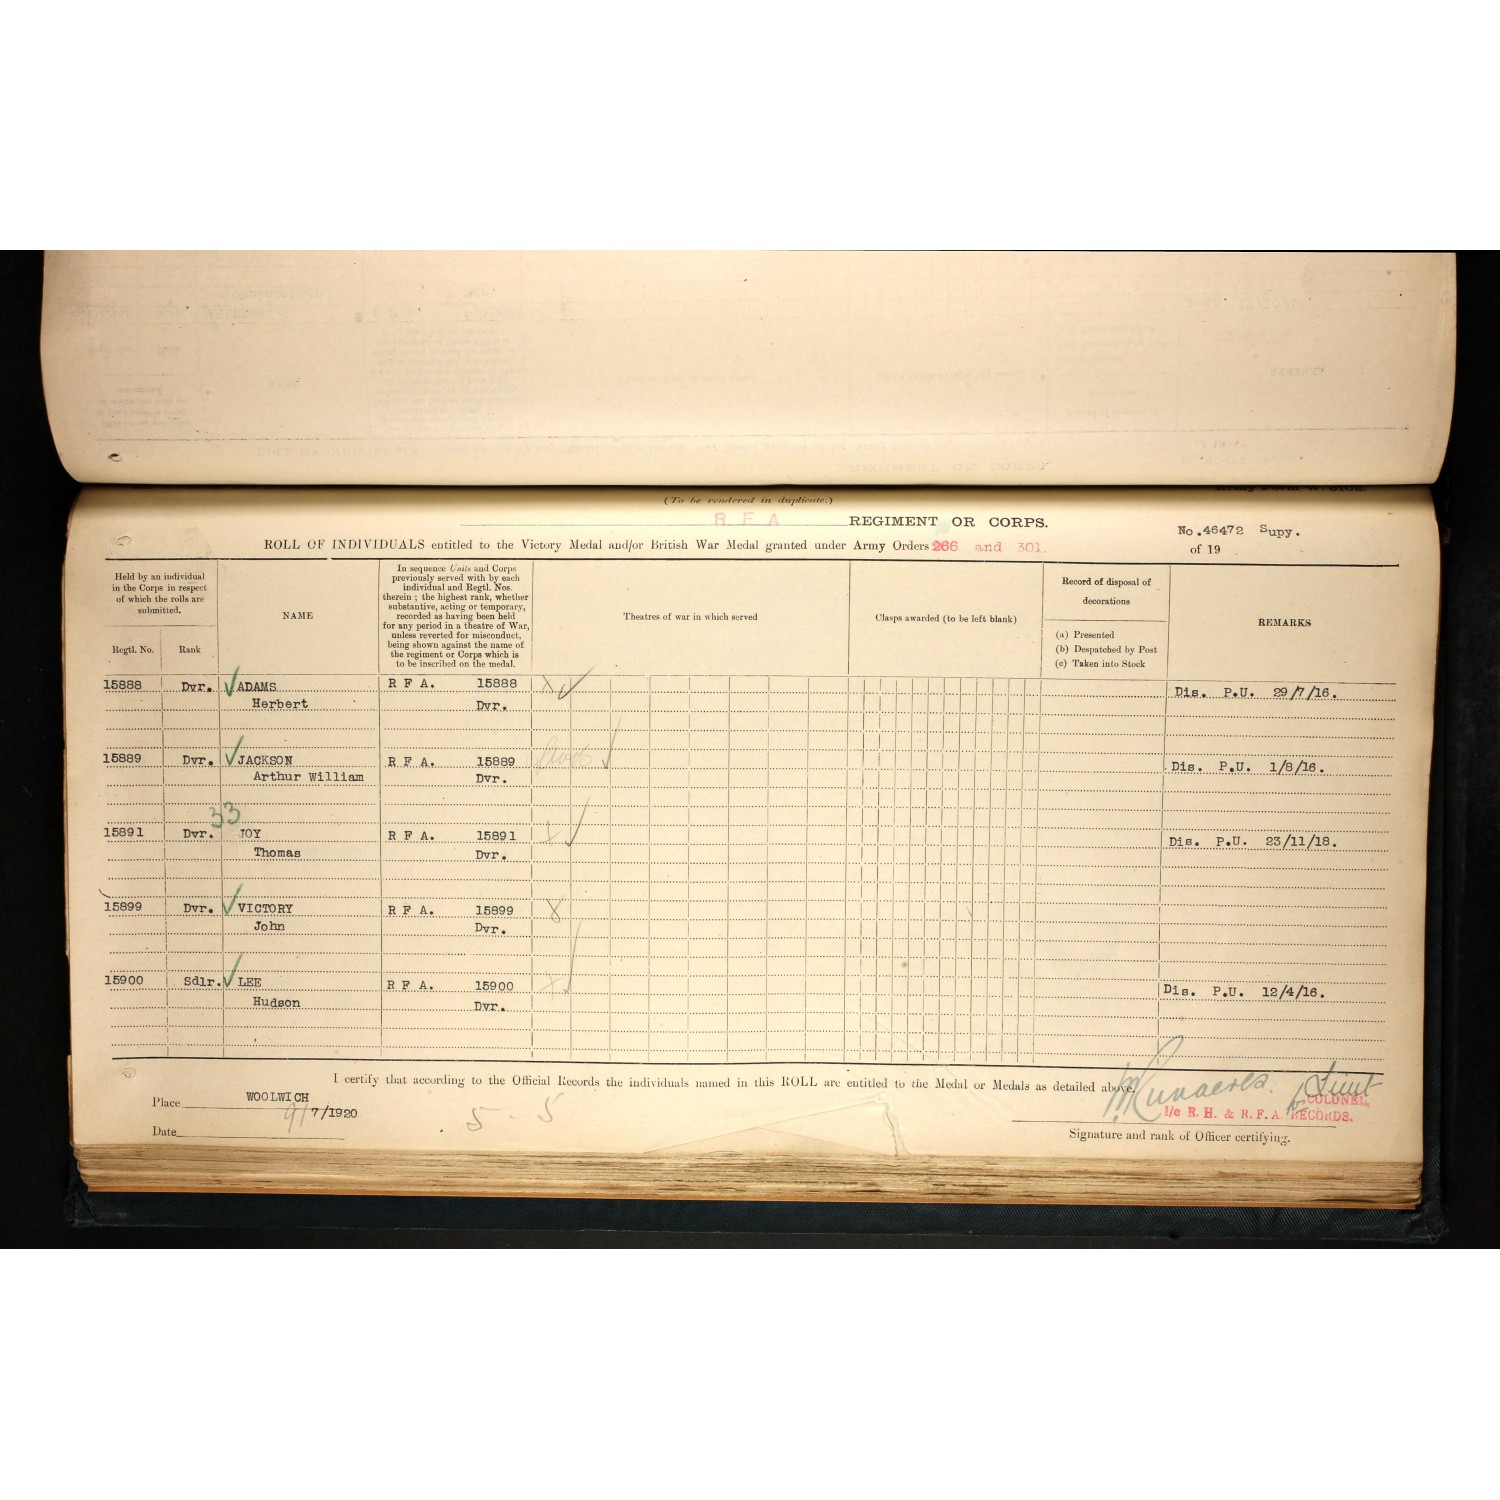 (To be rendered in duplicate.)
R F A REGIMENT OR CORPS.
No.46472 Supy.
ROLL OF INDIVIDUALS entitled to the Victory Medal and/or British War Medal granted under Army Orders 266 and 301.
of 19
Held by an individual
in the Corps in respect
of which the rolls are
submitted.
Regtl. No. Rank
NAME
In sequence Units and Corps
previously served with by each
individual and Regtl. Nos.
therein ; the highest rank, whether
substantive, acting or temporary,
recorded as having been held
for any period in a theatre of War,
unless reverted for misconduct,
being shown against the name of
the regiment or Corps which is
to be inscribed on the medal.
Theatres of war in which served
Clasps awarded (to be left blank)
Record of disposal of
decorations
(a) Presented
(b) Despatched by Post
(c) Taken into Stock
REMARKS
15888 Dvr. ADAMS R F A. 15888 Dis. P.U. 29/7/16.
Herbert Dvr.
15889 Dvr. JACKSON R F A. 15889 Dis. P.U. 1/8/16.
Arthur William Dvr.
33
15891 Dvr. JOY R F A. 15891 Dis. P.U. 23/11/18.
Thomas Dvr.
15899 Dvr. VICTORY R F A. 15899
John Dvr.
15900 Sdlr. LEE R F A. 15900 Dis. P.U. 12/4/16.
Hudson Dvr.
I certify that according to the Official Records the individuals named in this ROLL are entitled to the Medal or Medals as detailed above.
Place WOOLWICH
9/7/1920
Date
5 - 5
Lieut
COLONEL,
i/c R. H. & R. F. A. RECORDS.
Signature and rank of Officer certifying.